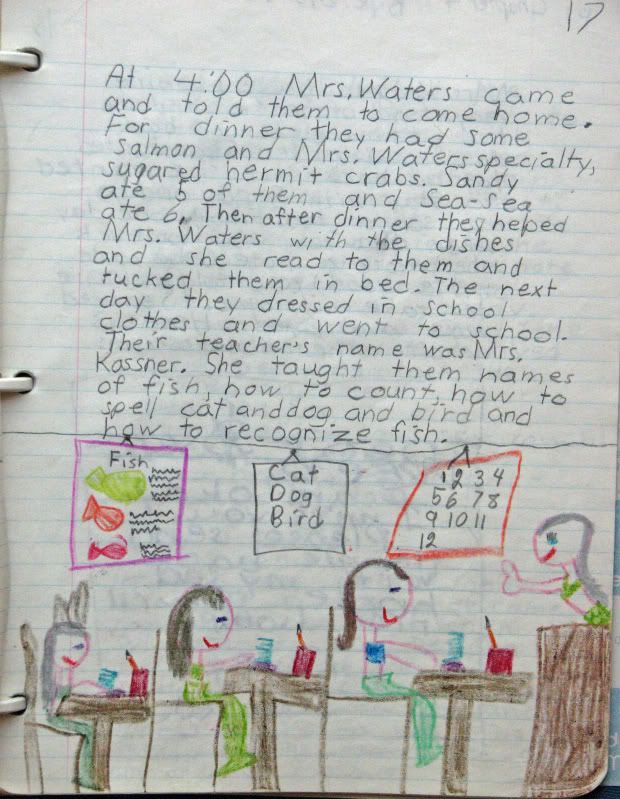 17
At 4:00 Mrs. Waters came
and told them to come home.
For dinner they had some
salmon and Mrs. Waters specialty,
sugared hermit crabs. Sandy
ate 5 of them and Sea-Sea
ate 6. Then after dinner they helped
Mrs. Waters with the dishes
and she read to them and
tucked them in bed. The next
day they dressed in school
clothes and went to school.
Their teacher's name was Mrs.
Kassner. She taught them names
of fish, how to count, how to
spell cat and dog and bird and
how to recognize fish.
Fish
Cat
Dog
Bird
1 2 3 4
5 6 7 8
9 10 11
12